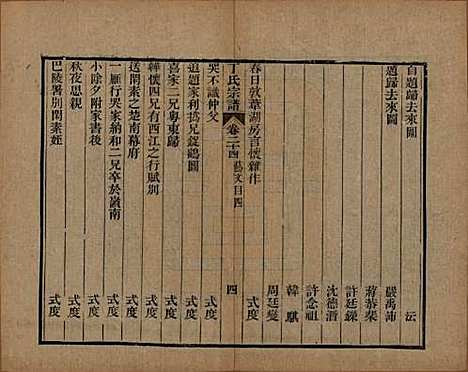 自題歸去來圖 沄
題歸去來圖 嚴禹沛
蔣恭棐
許廷鑅
沈德潛
許念祖
韓騏
周廷燮
春日敦華湖房言懷雜作 式度
丁氏宗譜 卷二十四 藝文目四 四
哭不識仲父 式度
道題家利撝兄錠鶴圖 式度
喜家二兄粵東歸 式度
韡懷四兄有西江之行賦別 式度
送閑素之楚南幕府 式度
一雁行哭家納和二兄卒於嶺南 式度
小除夕附家書後 式度
秋夜思親 式度
巴陵署別閑素姪 式度